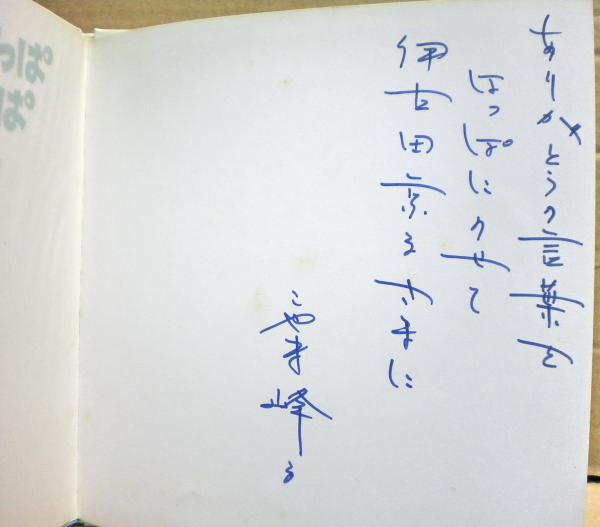 ありがとうの言葉を
はっぱにのせて
伊古田京子さまに
こやま峰子